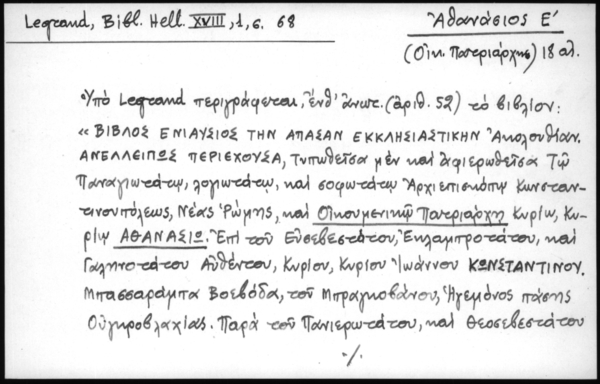 Legrand, Bibl. Hell. XVIII, 1, σ. 68
Ἀθανάσιος Ε'
(Οἰκ. Πατριάρχης) 18 αἰ.
Ὑπὸ Legrand περιγράφεται, ἔνθ' ἀνωτ. (ἀριθ. 52) τὸ βιβλίον:
« ΒΙΒΛΟΣ ΕΝΙΑΥΣΙΟΣ ΤΗΝ ΑΠΑΣΑΝ ΕΚΚΛΗΣΙΑΣΤΙΚΗΝ Ἀκολουθίαν.
ΑΝΕΛΛΕΙΠΩΣ ΠΕΡΙΕΧΟΥΣΑ, Τυπωθεῖσα μὲν καὶ ἀφιερωθεῖσα Τῷ
Παναγιωτάτῳ, λογιωτάτῳ, καὶ σοφωτάτῳ Ἀρχιεπισκόπῳ Κωνσταν-
τινουπόλεως, Νέας Ῥώμης, καὶ Οἰκουμενικῷ Πατριάρχῃ Κυρίῳ, Κυ-
ρίῳ ΑΘΑΝΑΣΙΩ. Ἐπὶ τοῦ Εὐσεβεστάτου, Ἐκλαμπροτάτου, καὶ
Γαληνοτάτου Αὐθέντου, Κυρίου, Κυρίου Ἰωάννου ΚΩΝΣΤΑΝΤΙΝΟΥ.
Μπασσαράμπα Βοεβόδα, τοῦ Μπραγκοβάνου, Ἡγεμόνος πάσης
Οὐγκροβλαχίας. Παρὰ τοῦ Πανιερωτάτου, καὶ Θεοσεβεστάτου
./.